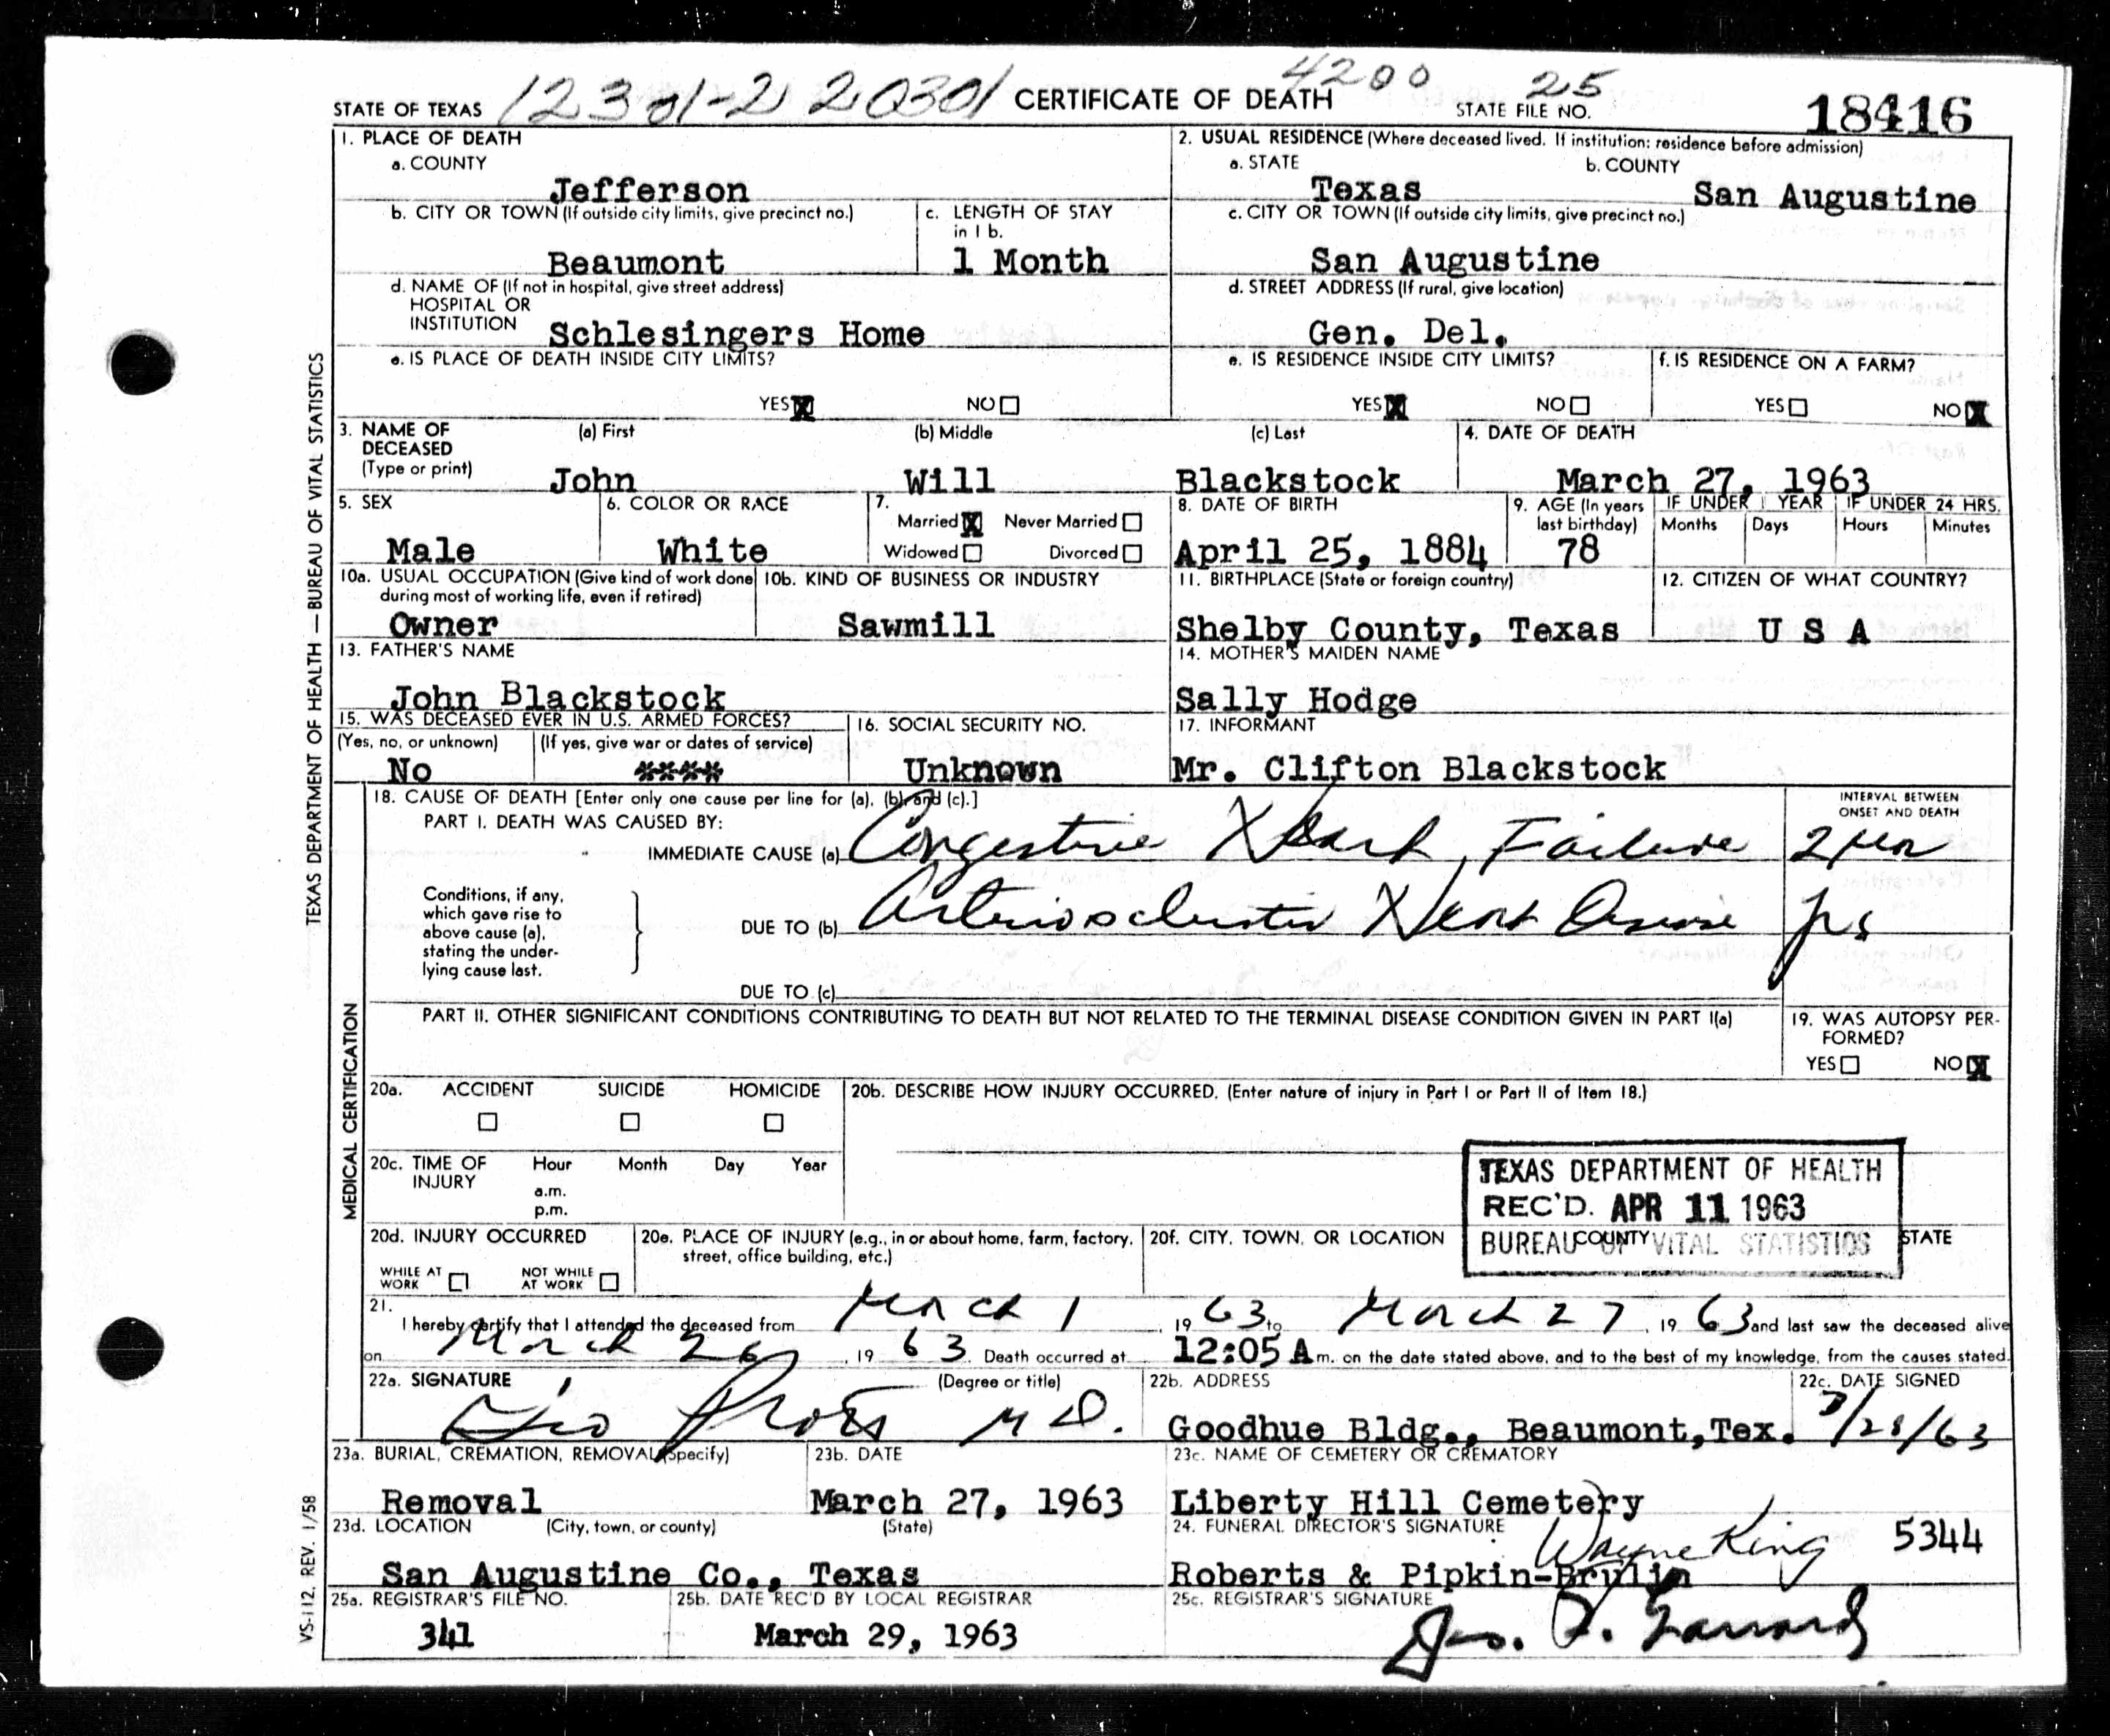 STATE OF TEXAS 12301-2 20301 CERTIFICATE OF DEATH 4200 25 STATE FILE NO. 18416
1. PLACE OF DEATH
a. COUNTY
Jefferson
b. CITY OR TOWN (If outside city limits, give precinct no.)
Beaumont
c. LENGTH OF STAY in 1 b.
1 Month
d. NAME OF (If not in hospital, give street address)
HOSPITAL OR
INSTITUTION Schlesingers Home
e. IS PLACE OF DEATH INSIDE CITY LIMITS?
YES X NO
2. USUAL RESIDENCE (Where deceased lived. If institution: residence before admission)
a. STATE b. COUNTY
Texas San Augustine
c. CITY OR TOWN (If outside city limits, give precinct no.)
San Augustine
d. STREET ADDRESS (If rural, give location)
Gen. Del.
e. IS RESIDENCE INSIDE CITY LIMITS?
YES X NO
f. IS RESIDENCE ON A FARM?
YES NO X
3. NAME OF DECEASED (Type or print)
(a) First (b) Middle (c) Last
John Will Blackstock
4. DATE OF DEATH
March 27, 1963
5. SEX
Male
6. COLOR OR RACE
White
7.
Married X Never Married
Widowed Divorced
8. DATE OF BIRTH
April 25, 1884
9. AGE (In years last birthday)
78
IF UNDER 1 YEAR IF UNDER 24 HRS.
Months Days Hours Minutes
10a. USUAL OCCUPATION (Give kind of work done during most of working life, even if retired)
Owner
10b. KIND OF BUSINESS OR INDUSTRY
Sawmill
11. BIRTHPLACE (State or foreign country)
Shelby County, Texas
12. CITIZEN OF WHAT COUNTRY?
U S A
13. FATHER'S NAME
John Blackstock
14. MOTHER'S MAIDEN NAME
Sally Hodge
15. WAS DECEASED EVER IN U.S. ARMED FORCES?
(Yes, no, or unknown) (If yes, give war or dates of service)
No ****
16. SOCIAL SECURITY NO.
Unknown
17. INFORMANT
Mr. Clifton Blackstock
18. CAUSE OF DEATH [Enter only one cause per line for (a), (b) and (c).]
INTERVAL BETWEEN ONSET AND DEATH
PART I. DEATH WAS CAUSED BY:
IMMEDIATE CAUSE (a) Congestive Heart Failure 2
Conditions, if any,
which gave rise to
above cause (a),
stating the under-
lying cause last.
DUE TO (b) Arteriosclerotic Heart Disease yrs
DUE TO (c)
PART II. OTHER SIGNIFICANT CONDITIONS CONTRIBUTING TO DEATH BUT NOT RELATED TO THE TERMINAL DISEASE CONDITION GIVEN IN PART I(a)
19. WAS AUTOPSY PER-
FORMED?
YES NO X
20a. ACCIDENT SUICIDE HOMICIDE
20b. DESCRIBE HOW INJURY OCCURRED. (Enter nature of injury in Part I or Part II of Item 18.)
20c. TIME OF INJURY Hour Month Day Year
a.m.
p.m.
TEXAS DEPARTMENT OF HEALTH
REC'D. APR 11 1963
BUREAU OF VITAL STATISTICS
20d. INJURY OCCURRED
WHILE AT WORK NOT WHILE AT WORK
20e. PLACE OF INJURY (e.g., in or about home, farm, factory, street, office building, etc.)
20f. CITY, TOWN, OR LOCATION COUNTY STATE
21.
I hereby certify that I attended the deceased from March 1, 1963 to March 27, 1963 and last saw the deceased alive
on March 26, 1963. Death occurred at 12:05 A m. on the date stated above, and to the best of my knowledge, from the causes stated.
22a. SIGNATURE (Degree or title)
M D.
22b. ADDRESS
Goodhue Bldg., Beaumont, Tex.
22c. DATE SIGNED
3/28/63
23a. BURIAL, CREMATION, REMOVAL (Specify)
Removal
23b. DATE
March 27, 1963
23c. NAME OF CEMETERY OR CREMATORY
Liberty Hill Cemetery
23d. LOCATION (City, town, or county) (State)
San Augustine Co., Texas
24. FUNERAL DIRECTOR'S SIGNATURE
Wayne King 5344
Roberts & Pipkin-Brulin
25a. REGISTRAR'S FILE NO.
341
25b. DATE REC'D BY LOCAL REGISTRAR
March 29, 1963
25c. REGISTRAR'S SIGNATURE
TEXAS DEPARTMENT OF HEALTH — BUREAU OF VITAL STATISTICS
MEDICAL CERTIFICATION
VS-112, REV. 1/58